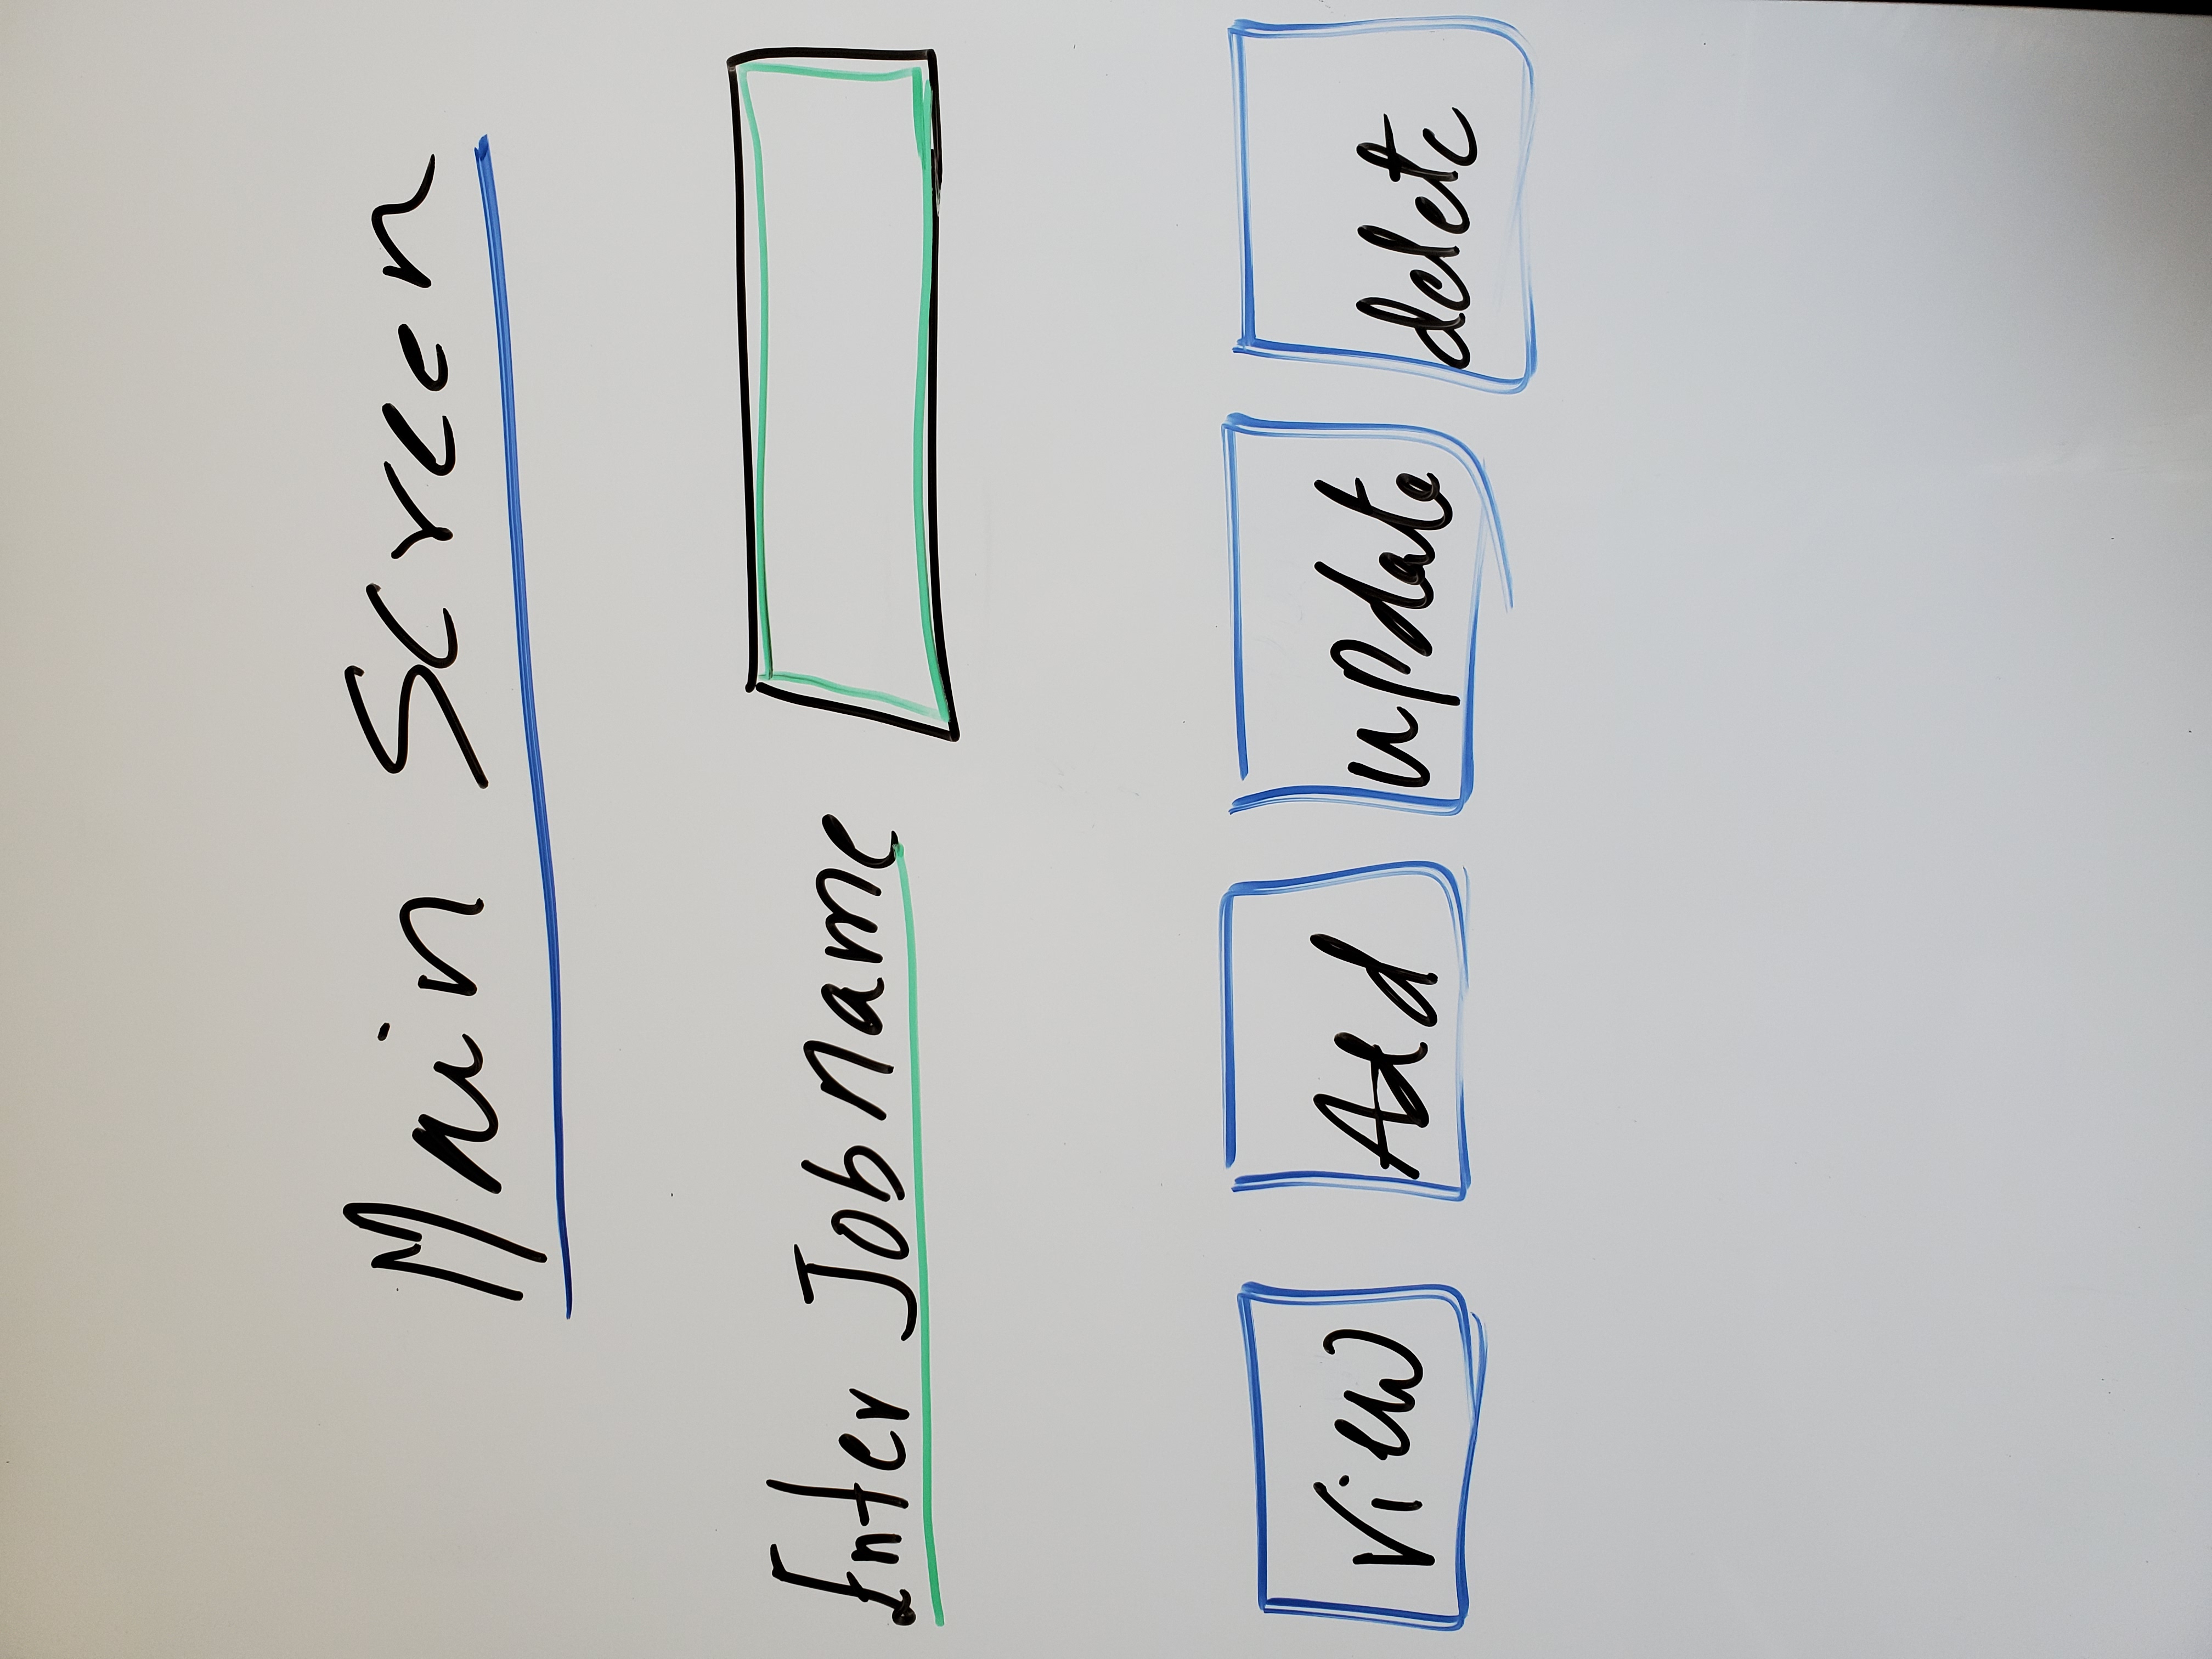 Main Screen
Enter Job name
View Add update delete